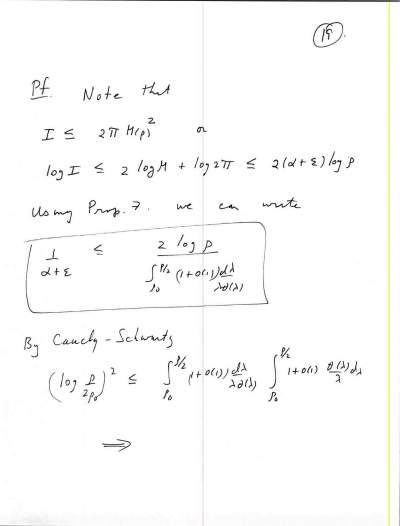 19.
Pf. Note that
I ≤ 2π M(ρ)² or
log I ≤ 2 log M + log 2π ≤ 2(α+ε) log ρ
Using Prop. 7. we can write
1/(α+ε) ≤ 2 log ρ / ∫_{ρ₀}^{ρ/2} (1+o(1)) dλ/(λθ(λ))
By Cauchy-Schwartz
(log ρ/2ρ₀)² ≤ ∫_{ρ₀}^{ρ/2} (1+o(1)) dλ/(λθ(λ)) ∫_{ρ₀}^{ρ/2} 1+o(1) θ(λ)/λ dλ
⇒